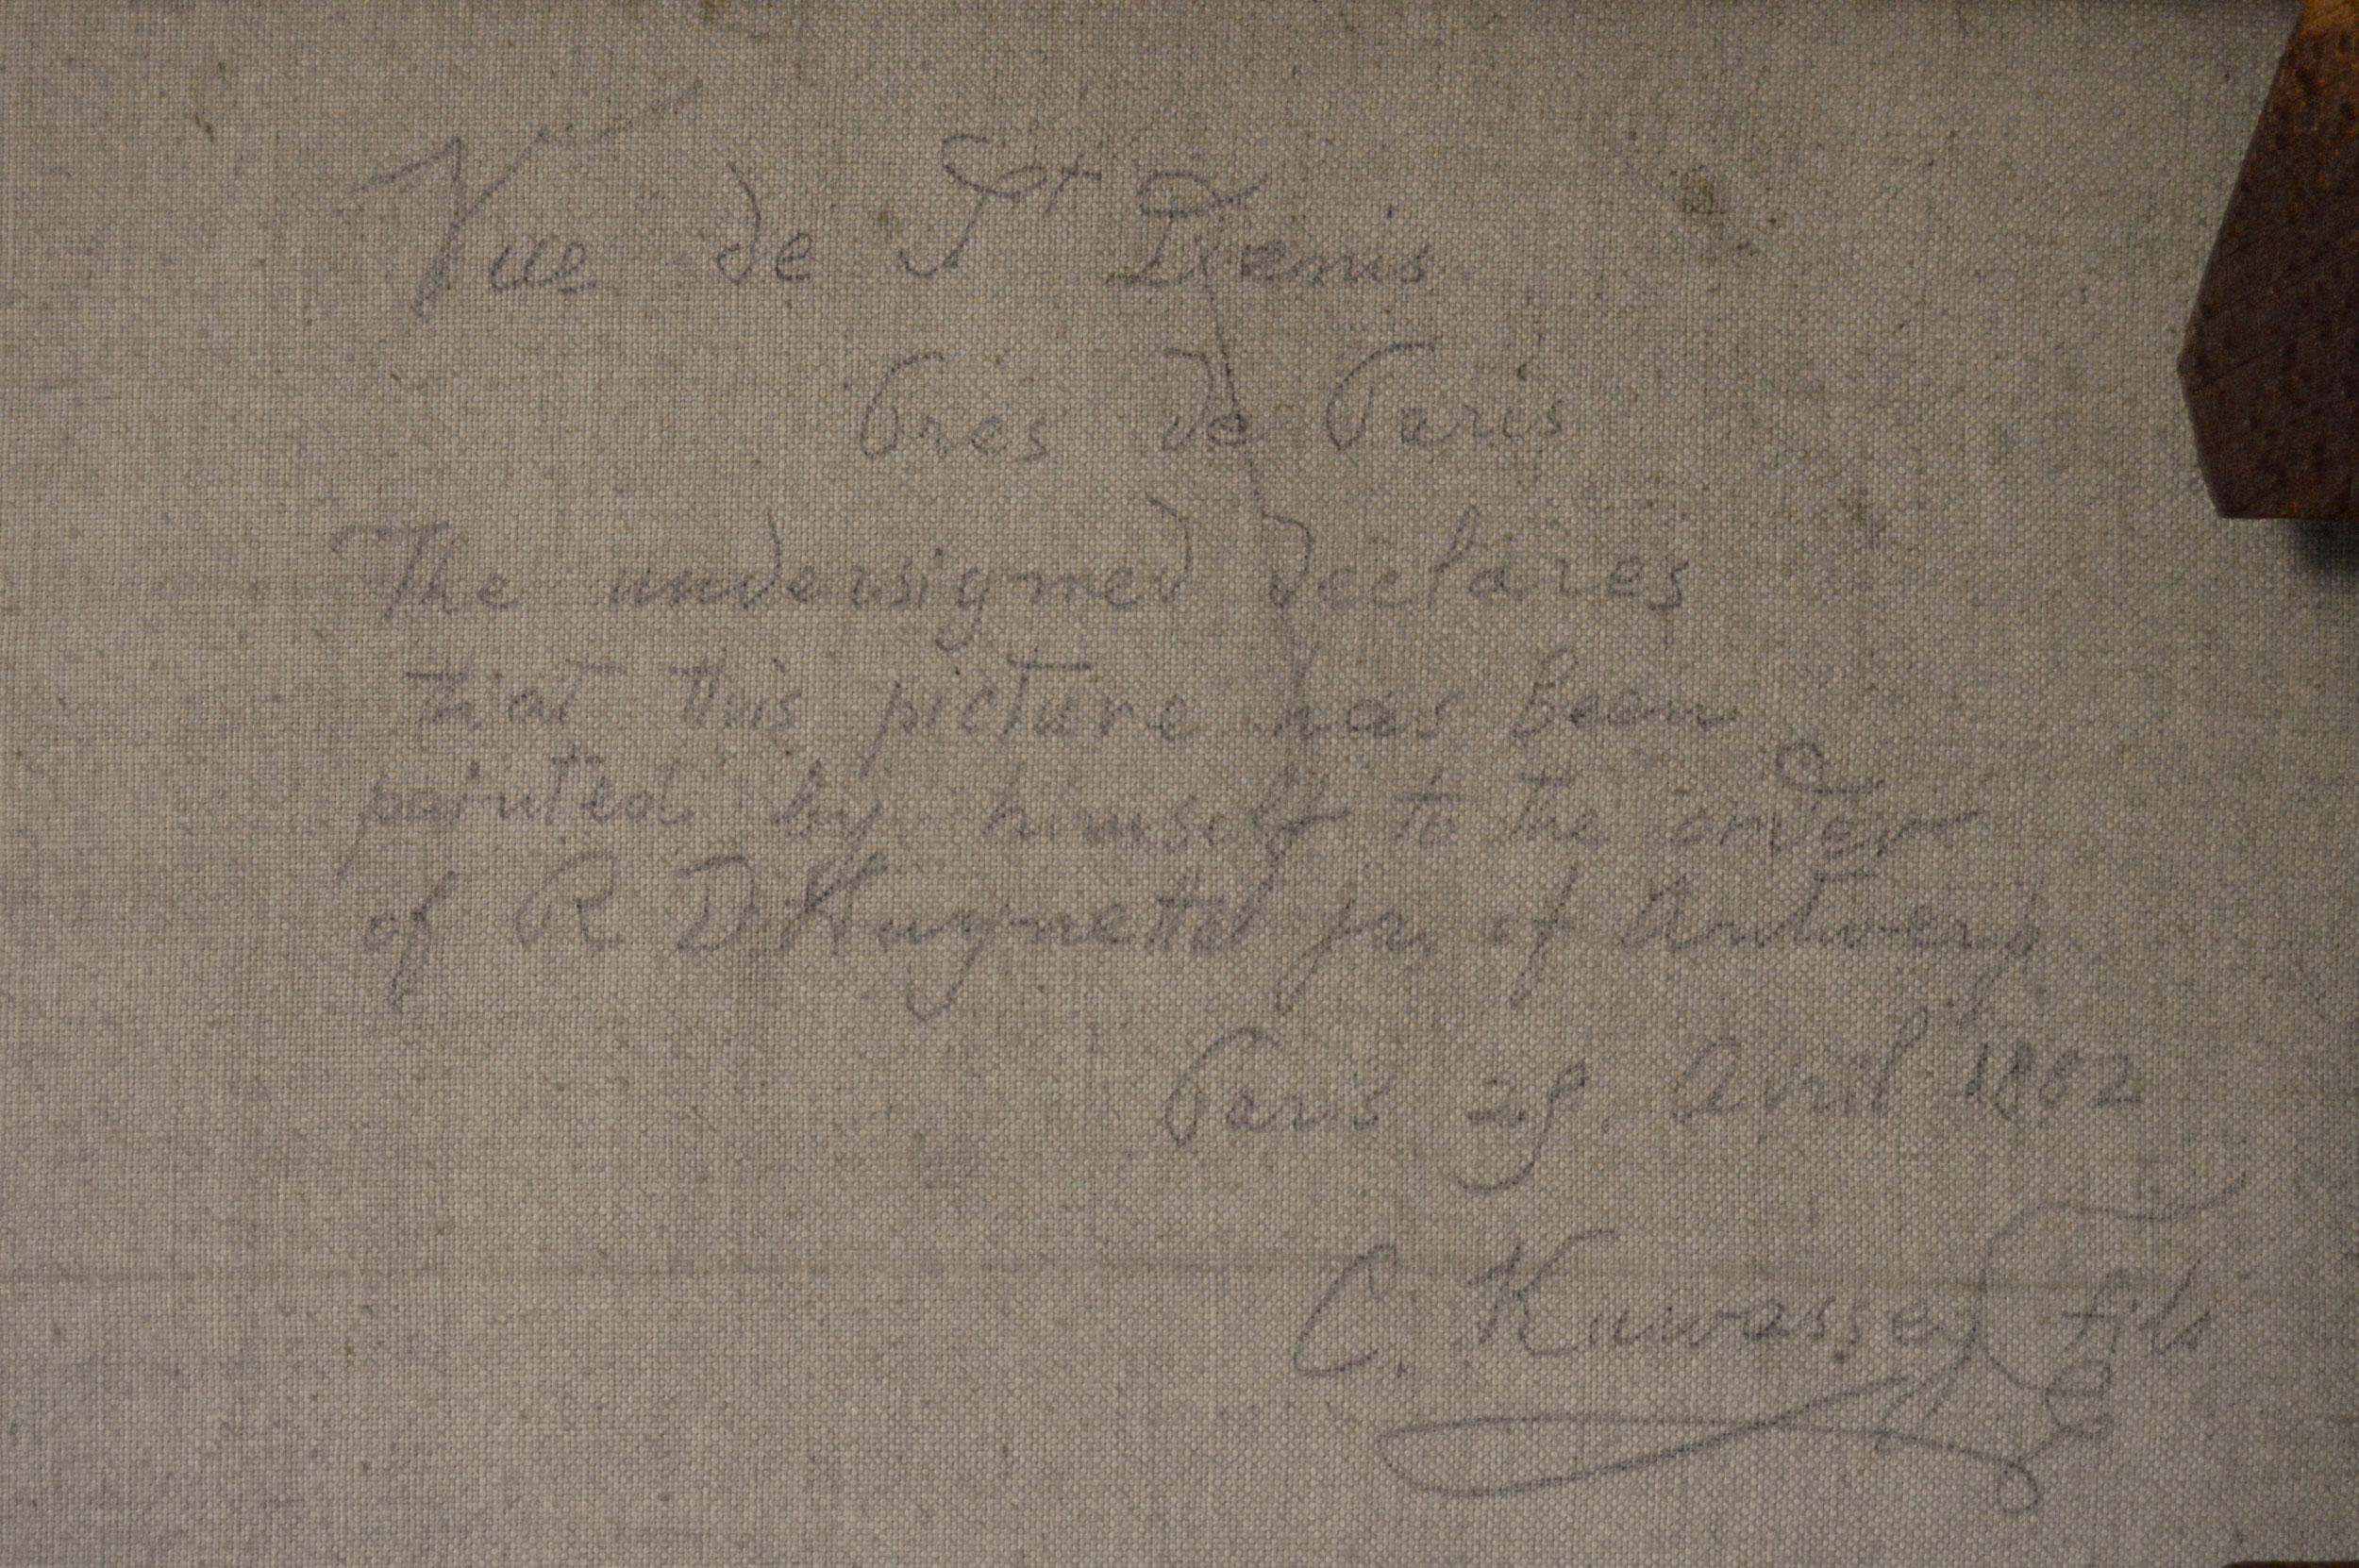 Vue de St Denis
Pres de Paris
The undersigned declares
that this picture has been
painted by himself to the order
of R D Huynetta jr of Antwerp
Paris 29. Avril 1862
C. Kuwasseg fils